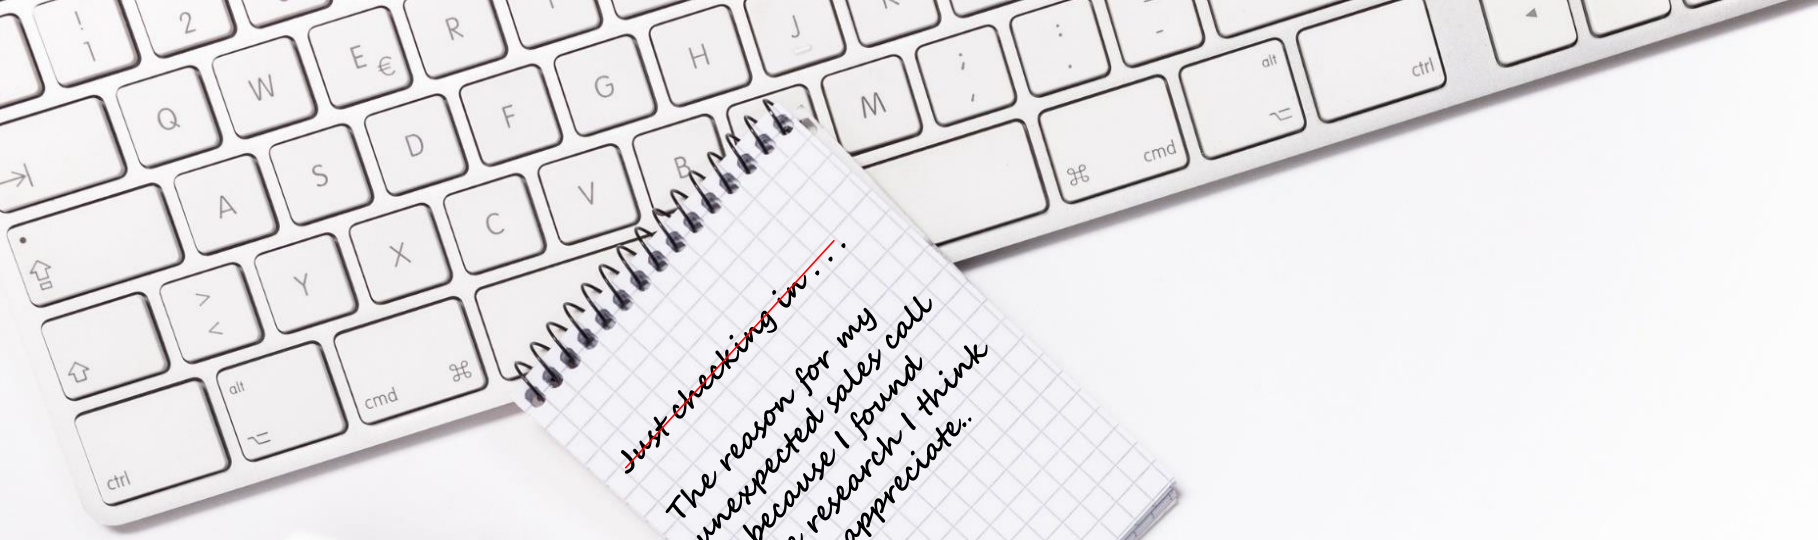 ! 1
2
Q
W
E €
R
A
S
D
F
G
H
J
> <
Y
X
C
V
B
M
; ,
: .
-
alt
ctrl
cmd
ctrl
alt
cmd
Just checking in...
The reason for my
unexpected sales call
because I found
research I think
appreciate..